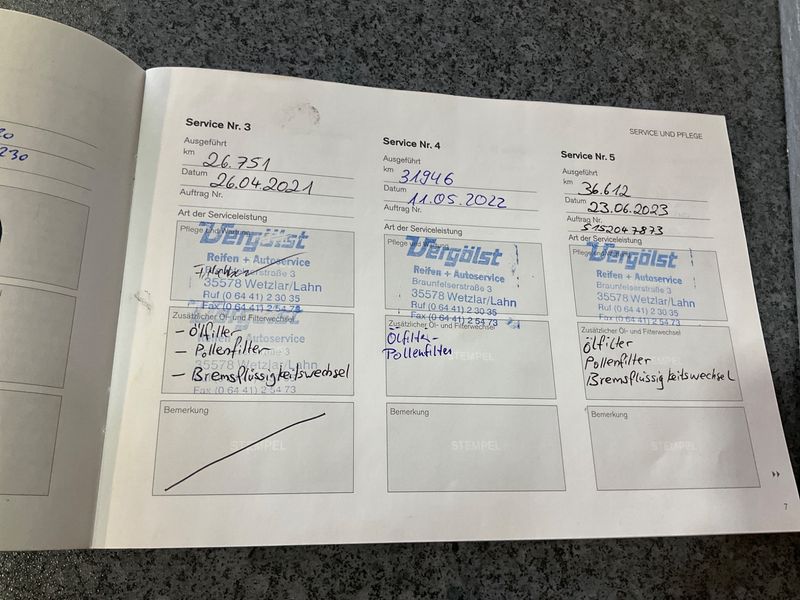 20
230
Service Nr. 3
Ausgeführt
km 26.751
Datum 26.04.2021
Auftrag Nr.
Art der Serviceleistung
Pflege und Wartung
Vergölst
Reifen + Autoservice
Braunfelserstraße 3
35578 Wetzlar/Lahn
Ruf (0 64 41) 2 30 35
Fax (0 64 41) 2 54 73
Zusätzlicher Öl- und Filterwechsel
- Ölfilter
- Pollenfilter
- Bremsflüssigkeitswechsel
35578 Wetzlar/Lahn
Fax (0 64 41) 2 54 73
Bemerkung
STEMPEL
Service Nr. 4
Ausgeführt
km 31946
Datum 11.05.2022
Auftrag Nr.
Art der Serviceleistung
Pflege und Wartung
Vergölst
Reifen + Autoservice
Braunfelserstraße 3
35578 Wetzlar/Lahn
Ruf (0 64 41) 2 30 35
Fax (0 64 41) 2 54 73
Zusätzlicher Öl- und Filterwechsel
Ölfilter-
Pollenfilter
STEMPEL
Bemerkung
STEMPEL
SERVICE UND PFLEGE
Service Nr. 5
Ausgeführt
km 36.612
Datum 23.06.2023
Auftrag Nr.
5152047873
Art der Serviceleistung
Pflege und Wartung
Vergölst
Reifen + Autoservice
Braunfelserstraße 3
35578 Wetzlar/Lahn
Ruf (0 64 41) 2 30 35
Fax (0 64 41) 2 54 73
Zusätzlicher Öl- und Filterwechsel
Ölfilter
Pollenfilter
Bremsflüssigkeitswechsel
Bemerkung
STEMPEL
7